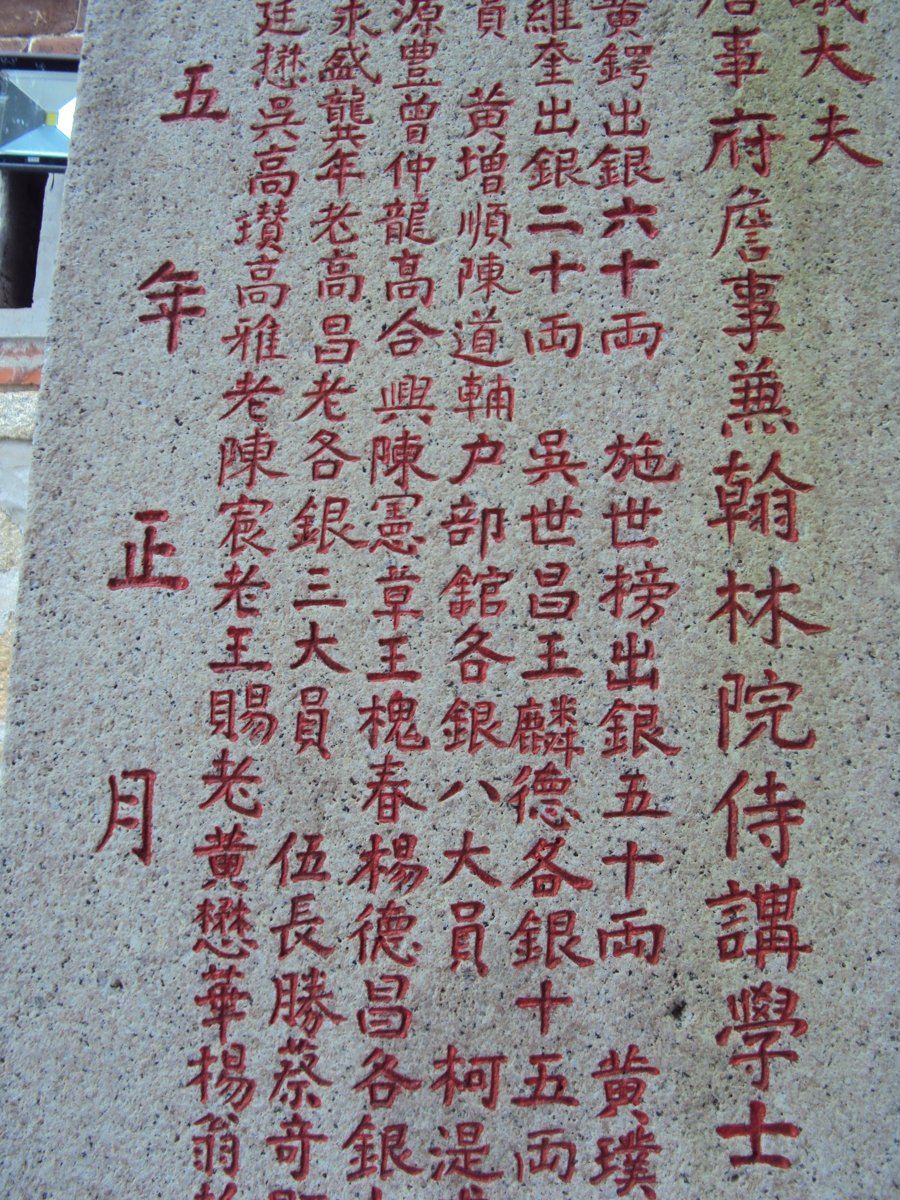 大夫
事府詹事兼翰林院侍講學士
黄鍔出銀六十両　施世榜出銀五十両　黄璞
維奎出銀二十両　吳世昌王麟德各銀十五両
員　黄增順陳道輔户部館各銀八大員　柯湜
源豊曾仲龍高合興陳憲草王槐春楊德昌各銀
永盛龔年老高昌老各銀三大員　伍長勝蔡奇
廷懋吳高瓚高雅老陳宸老王賜老黄懋華楊翁
五年正月